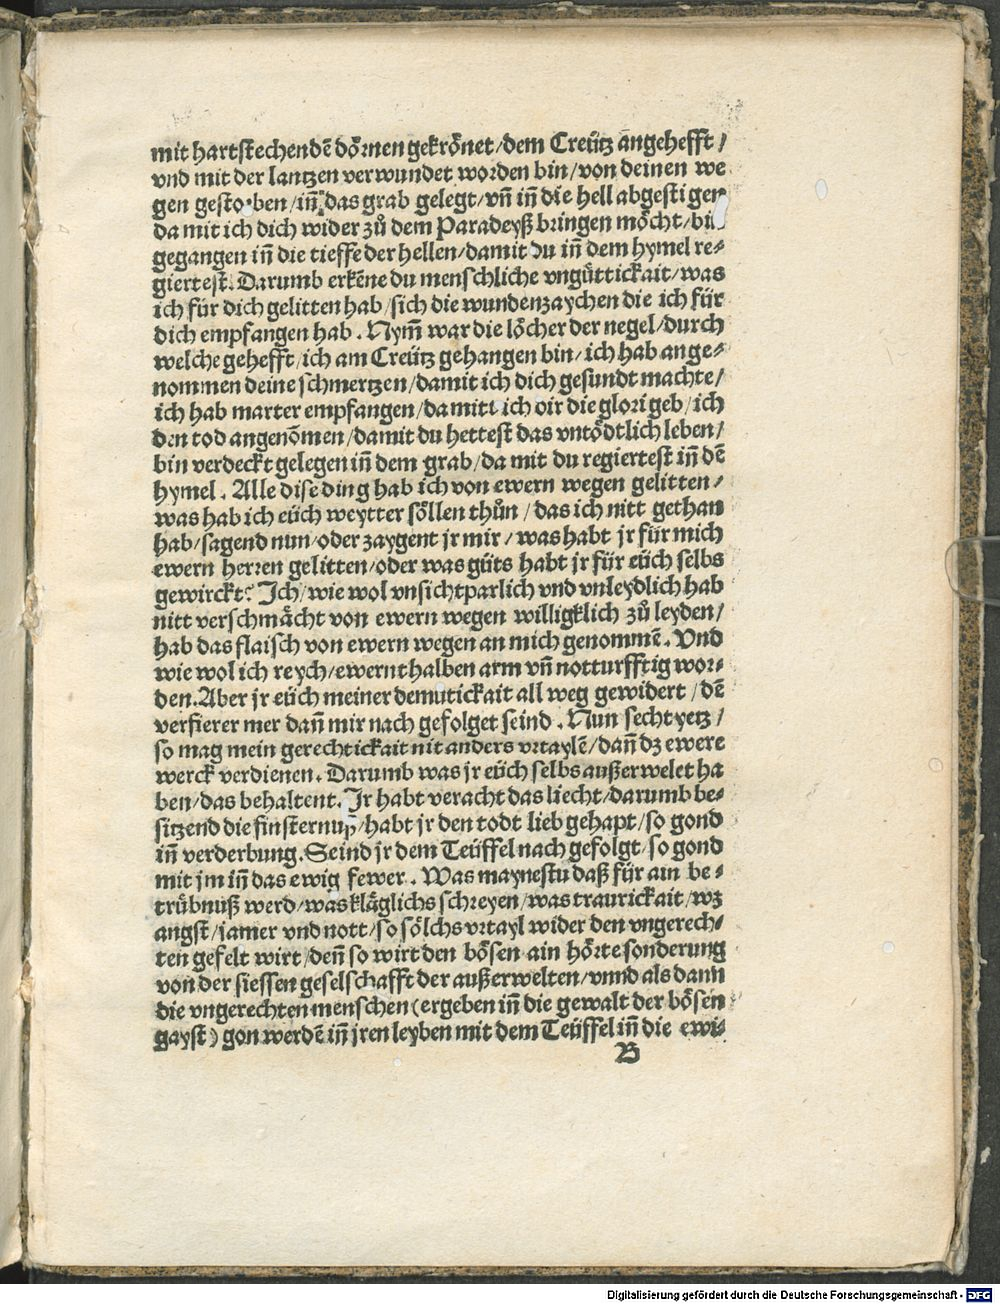 mit hartstechendẽ dörnen gekrönet/dem Creütz angehefft/
vnd mit der lantzen verwundet worden bin/von deinen we
gen gestorben/iñ das grab gelegt/vñ iñ die hell abgestigen
da mit ich dich wider zů dem Paradeyß bringen möcht/bin
gegangen iñ die tieffe der hellen/damit du iñ dem hymel re⸗
giertest. Darumb erkẽne du menschliche vngüttickait/was
ich für dich gelitten hab/sich die wundenzaychen die ich für
dich empfangen hab. Nym̃ war die löcher der negel/durch
welche gehefft/ich am Creütz gehangen bin/ich hab ange⸗
nommen deine schmertzen/damit ich dich gesundt machte/
ich hab marter empfangen/da mitt ich dir die glori geb/ich
den tod angenom̃en/damit du hettest das vntödtlich leben/
bin verdeckt gelegen iñ dem grab/da mit du regiertest iñ dẽ
hymel. Alle dise ding hab ich von ewern wegen gelitten/
was hab ich eüch weytter söllen thůn/das ich nitt gethan
hab/sagend nun/oder zaygent jr mir/was habt jr für mich
ewern herren gelitten/oder was güts habt jr für eüch selbs
gewirckt? Ich/wie wol vnsichtparlich vnd vnleydlich hab
nitt verschmächt von ewern wegen willigklich zů leyden/
hab das flaisch von ewern wegen an mich genommẽ. Vnd
wie wol ich reych/ewernthalben arm vñ notturfftig wor⸗
den. Aber jr eüch meiner demutickait all weg gewidert/dẽ
verfierer mer dañ mir nach gefolget seind. Nun secht yetz/
so mag mein gerechtickait nit anders vrtaylẽ/dañ dz ewere
werck verdienen. Darumb was jr eüch selbs außerwelet ha
ben/das behaltent. Ir habt veracht das liecht/darumb be⸗
sitzend die finsternuß/habt jr den todt lieb gehapt/so gond
iñ verderbung. Seind jr dem Teüffel nach gefolgt/so gond
mit jm iñ das ewig fewer. Was maynestu daß für ain be⸗
trübnuß werd/was kläglichs schreyen/was traurickait/wz
angst/jamer vnd nott/so sölchs vrtayl wider den vngerech⸗
ten gefelt wirt/deñ so wirt den bösen ain hörte sonderung
von der siessen geselschafft der außerwelten/vnnd als dann
die vngerechten menschen (ergeben iñ die gewalt der bösen
gayst) gon werdẽ iñ jren leyben mit dem Teüffel iñ die ewi⸗
B
Digitalisierung gefördert durch die Deutsche Forschungsgemeinschaft - DFG